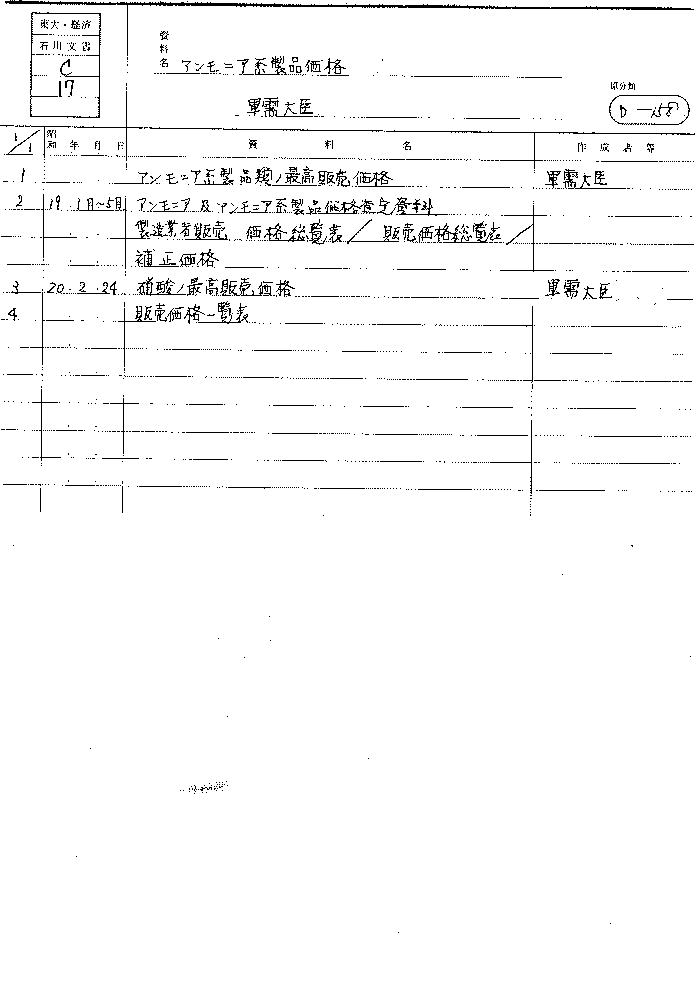 東大・経済
石川文書
C
17
資料名 アンモニア系製品価格
軍需大臣
原分類
D-158
1/1 昭和 年 月 日 資料名 作成者等
1 アンモニア系製品類ノ最高販売価格 軍需大臣
2 19 1月~5月 アンモニア及アンモニア系製品価格査定資料
製造業者販売 価格総覧表/ 販売価格総覧表/
補正価格
3 20・2・24 硝酸ノ最高販売価格 軍需大臣
4 販売価格一覧表